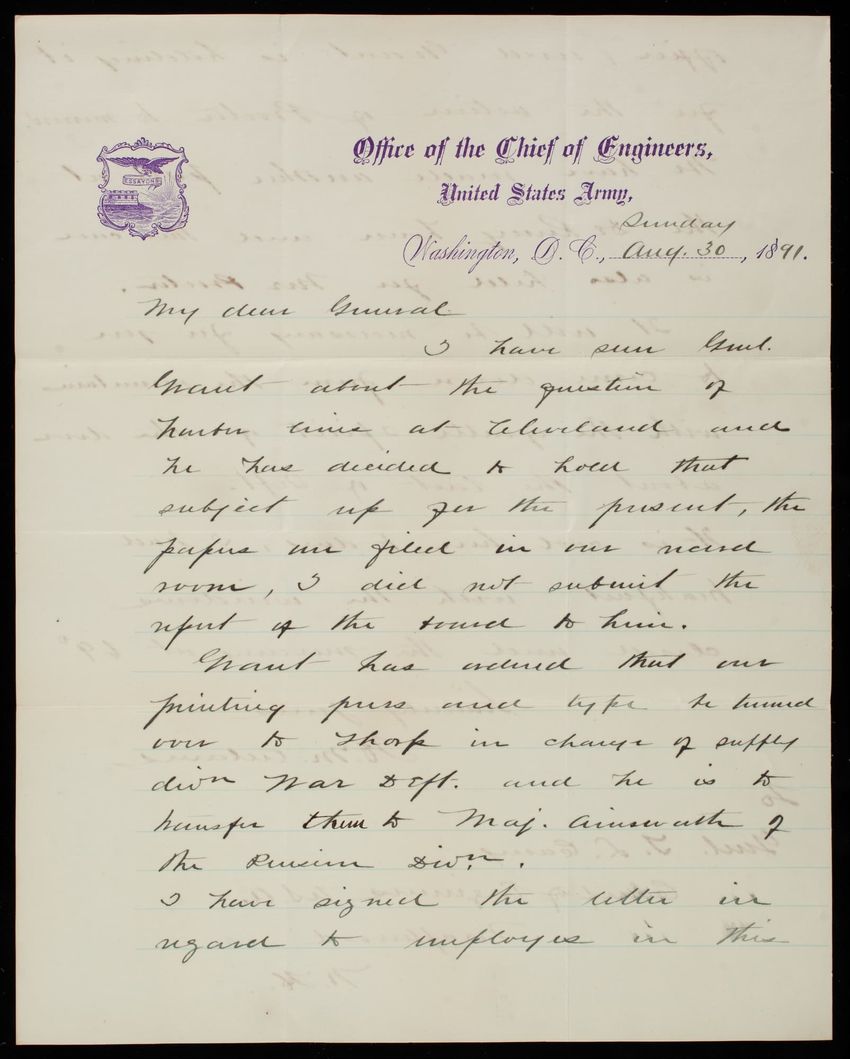 ESSAYONS
Office of the Chief of Engineers,
United States Army,
Sunday
Washington, D. C., Aug. 30, 1891.
My dear General
I have seen Genl.
Grant about the question of
harbor lines at Cleveland and
he has decided to hold that
subject up for the present, the
papers are filed in our record
room, I did not submit the
report of the board to him.
Grant has ordered that our
printing press and type be turned
over to Thorp in charge of supply
divn War Dept. and he is to
transfer them to Maj. Ainsworth of
the Pension Divn.
I have signed the letter in
regard to employes in this